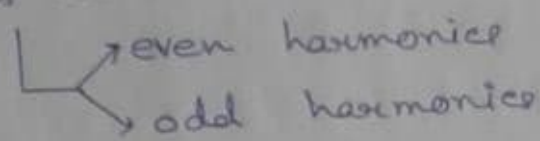 even harmonics
odd harmonics